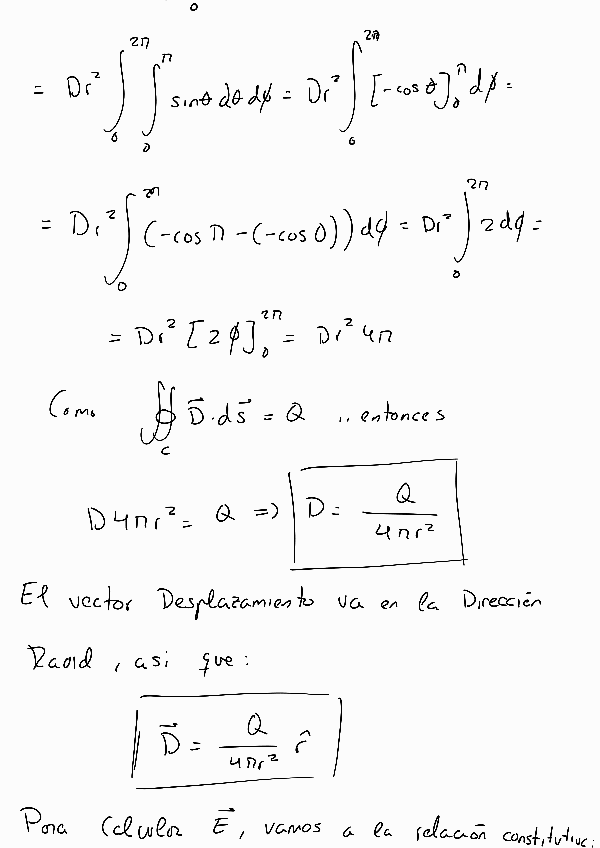 = Dr² ∫₀^{2π} ∫₀^{π} sinθ dθ dϕ = Dr² ∫₀^{2π} [-cos θ]₀^{π} dϕ =
= Dr² ∫₀^{2π} (-cos π - (-cos 0)) dϕ = Dr² ∫₀^{2π} 2 dϕ =
= Dr² [2ϕ]₀^{2π} = Dr² 4π
Como ∯_c D⃗·ds⃗ = Q ,, entonces
D 4πr² = Q => D = Q / 4πr²
El vector Desplazamiento va en la Dirección
Radial, asi que:
D⃗ = Q / 4πr² r̂
Para Calcular E⃗, vamos a la relación constitutiva: